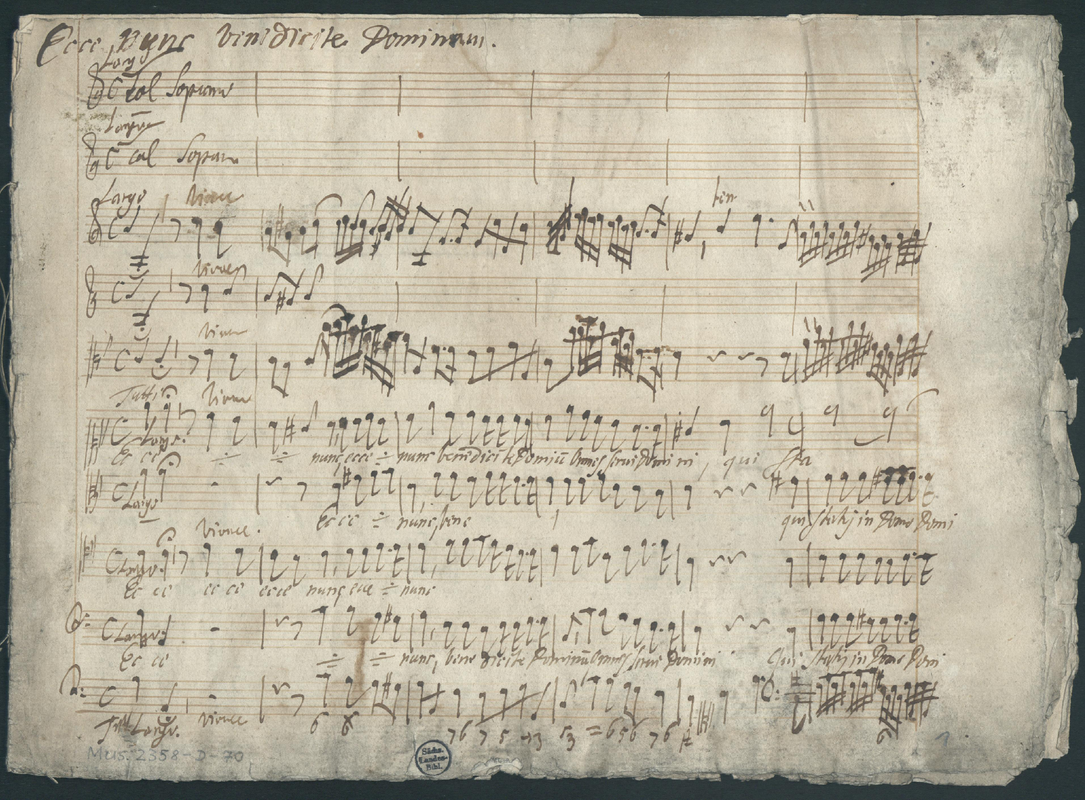 Ecce Nunc benedicite Dominum.
Largo
Col Soprano
Largo
col Sopran
Largo Vivace
Vivace
Vivace
Tutti Vivace
Largo.
Ecce nunc ecce nunc benedicite Dominū Omnes servi Domini, qui sta
Largo
Ecce nunc, bene qui statis in Domo Domi
Vivace.
Largo.
Ecce ecce ecce nunc ecce nunc
Largo.
Ecce nunc, bene dicite Dominū Omnes servi Domini Qui statis in Domo Domi
Largo. Vivace
6 6 7 6 7 5 6 5 6 7 6
Mus. 2358-D-70
Sächs.
Landes-
Bibl.